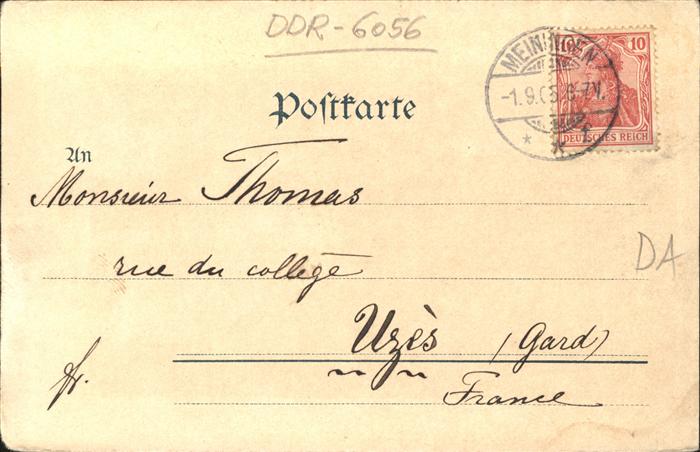 DDR-6056
MEININGEN
10
-1.9.05 6-7V.
DEUTSCHES REICH
Postkarte
An
Monsieur Thomas
rue du collège
DA
Uzès (Gard)
fr.
France